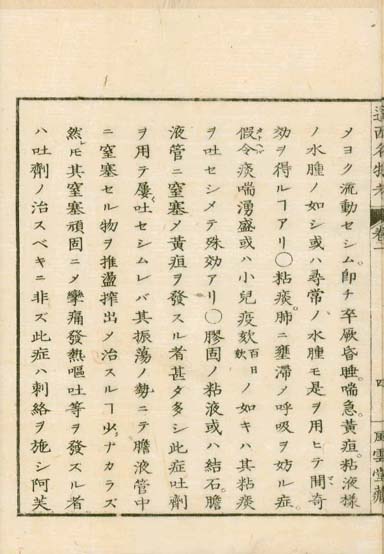 遠西名物考 卷一
風雲堂藏
メヨク流動セシム。即チ卒厥昏睡。喘急。黃疸。粘液樣
ノ水腫ノ如シ或ハ尋常ノ水腫モ是ヲ用ヒテ間奇
効ヲ得ルヿアリ○粘痰。肺ニ壅滯ノ呼吸ヲ妨ル症。
假令痰喘湧盛或ハ小兒疫欬百日欬ノ如キハ其粘痰
ヲ吐セシメテ殊効アリ○膠固ノ粘液或ハ結石。膽
液管ニ窒塞メ黃疸ヲ發スル者甚タ多シ此症吐劑
ヲ用テ屢吐セシムレバ其振蕩ノ勢ニテ膽液管中
ニ窒塞セル物ヲ推盪搾出メ治スルヿ少ナカラズ
然レモ其窒塞頑固ニメ攣痛發熱嘔吐等ヲ發スル者
ハ吐劑ノ治スベキニ非ズ此症ハ刺絡ヲ施シ阿芙